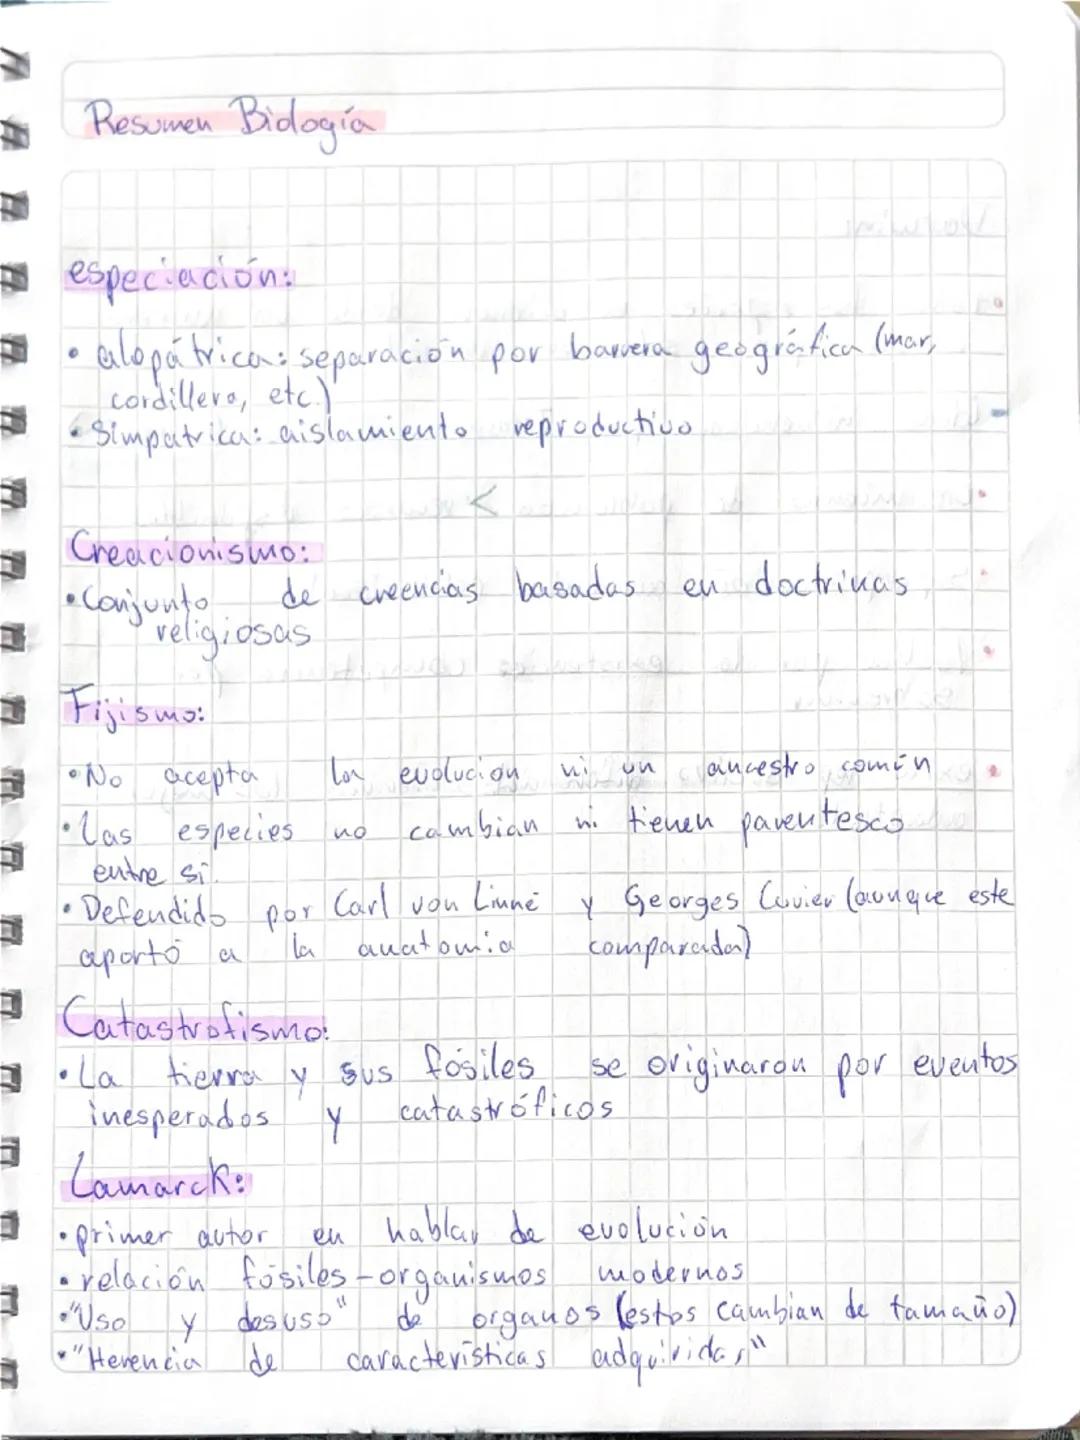 Resumen Biología
especiación:
• alopátrica: separación por barrera geográfica (mar,
cordillera, etc.)
• Simpatrica: aislamiento reproductivo
<
Creacionismo:
• Conjunto de creencias basadas en doctrinas
religiosas
Fijismo:
• No acepta la evolucion ni un ancestro común
• Las especies no cambian ni tienen parentesco
entre sí.
• Defendido por Carl von Linné y Georges Cuvier (aunque este
aportó a la anatomia comparada)
Catastrofismo:
• La tierra y sus fósiles se originaron por eventos
inesperados y catastróficos
Lamarck:
• primer autor en hablar de evolución
• relación fósiles-organismos modernos
• "Uso y desuso" de organos (estos cambian de tamaño)
• "Herencia de características adquiridas"